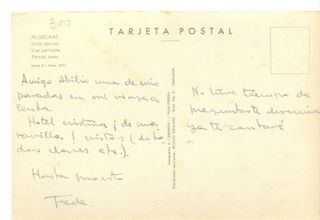 300
TARJETA POSTAL
ALGECIRAS
Vista parcial.
Vue partielle.
Partial view.
Amigo Abilio una de mis
paradas en mi viaje a
Ceuta.
Hotel cristina ¡de mara
villa! vistas (de
dos clases etc.).
Hasta pronto
Fede.
No tuve tiempo de
preguntarte direcciones
ya te contaré